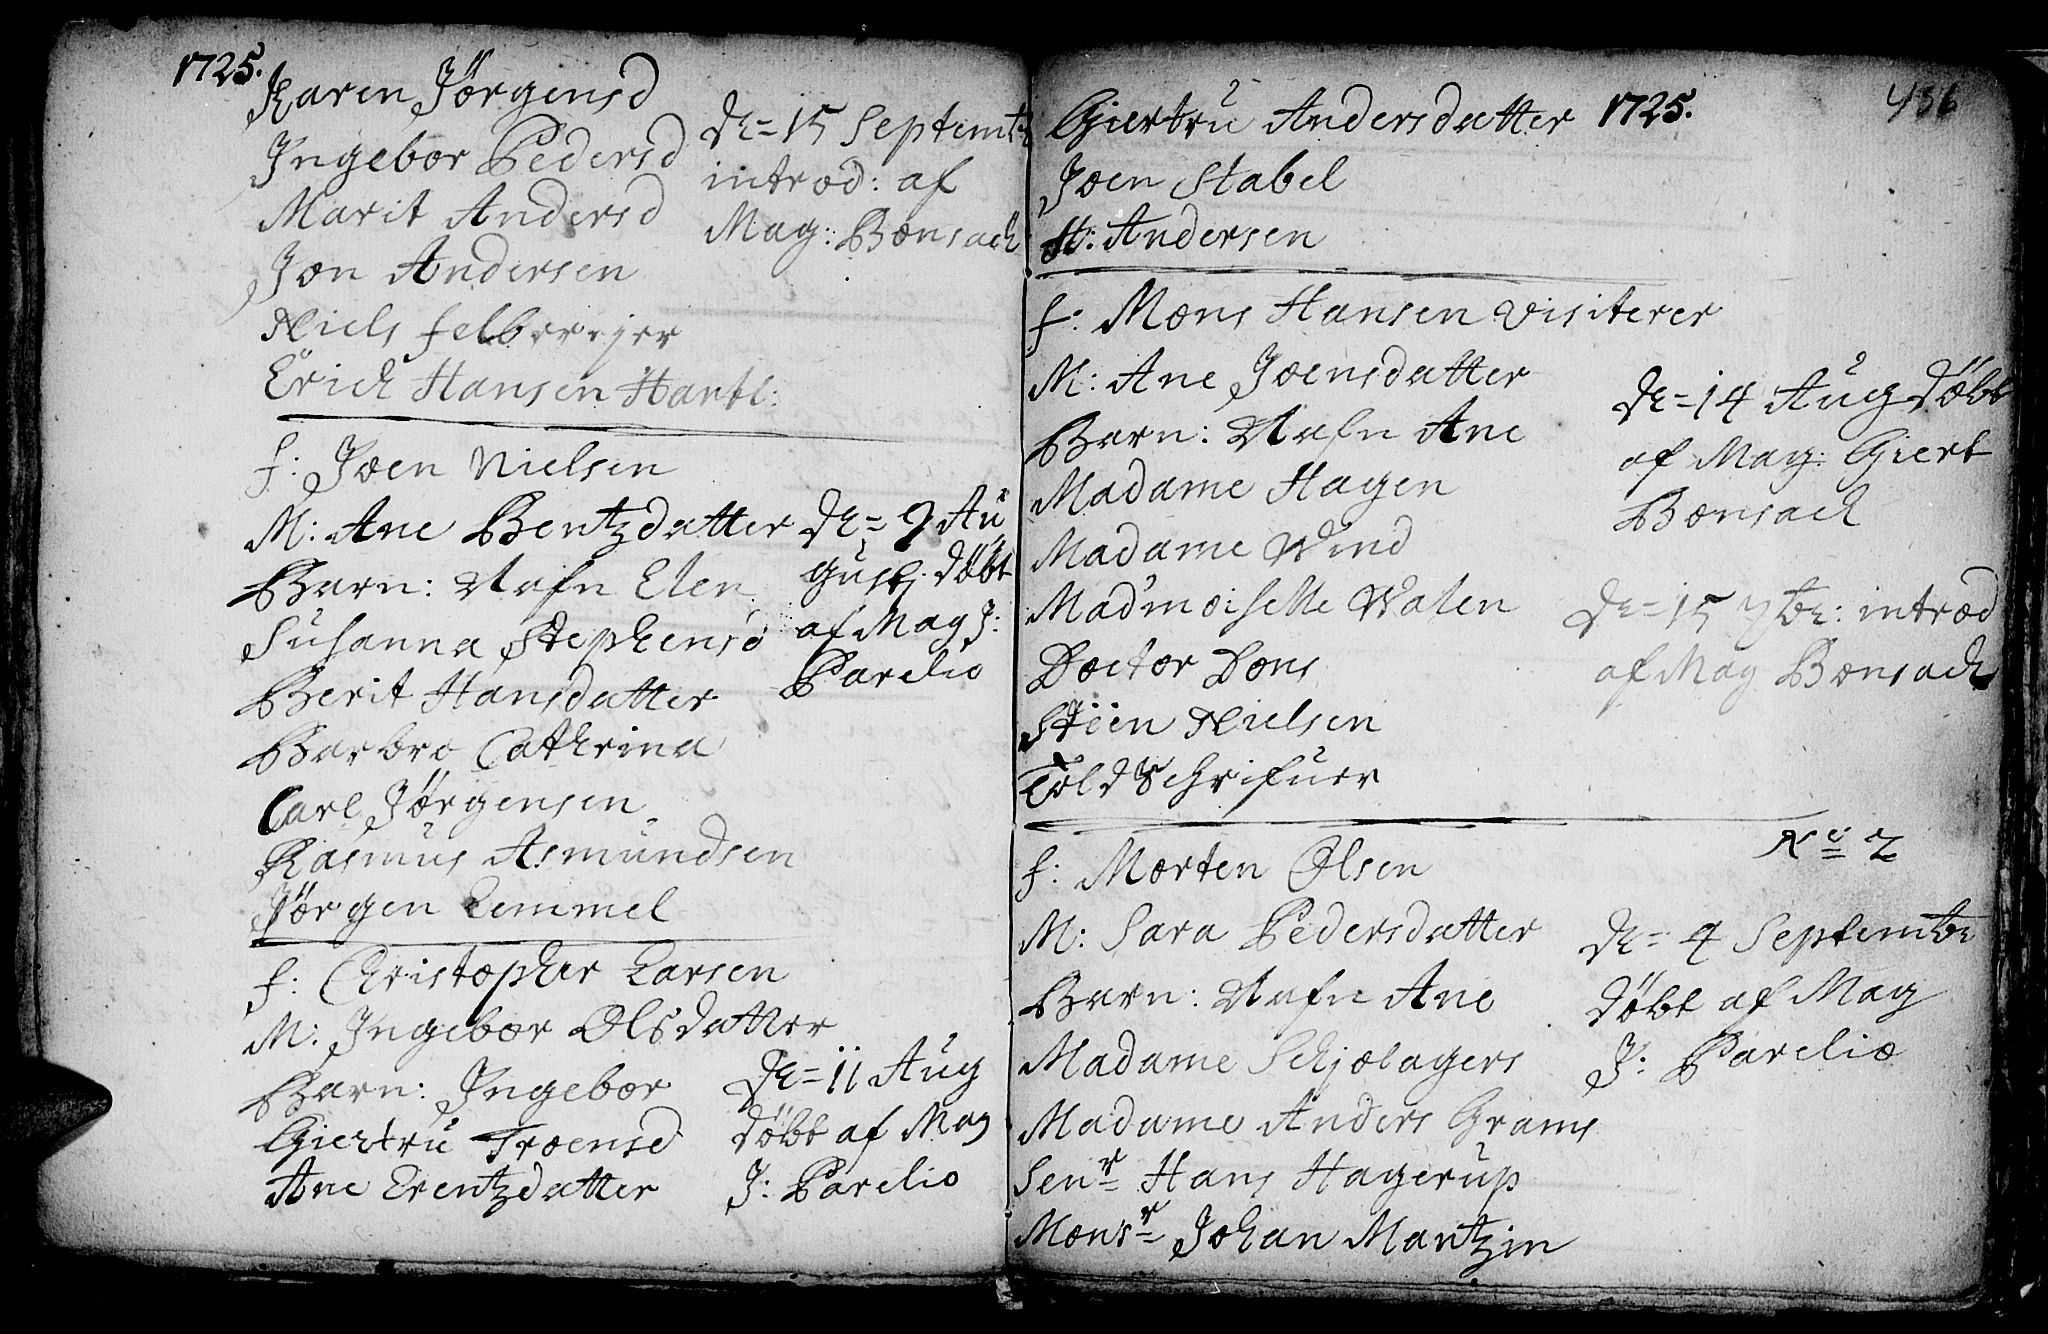 1725.
Karen Jørgensd
Ingebor Pedersd
Marit Andersd
Jon Andersen
Niels felbereijer
Erich Hansen Hartl:
D= 15 Septembr
introd: af
Mag: Bonsach
f: Joen Nielsen
M: Ane Bentzdatter
Barn: Nafn Elen
Susanna Stephensd
Berit Hansdatter
Barbro Cathrina
Carl Jørgensen
Rasmus Asmundsen
Jørgen Lemmel
D= 9 Au
gust: døbt
af Mag J:
Parelio
f: Christopher Larsen
M: Ingebor Olsdatter
Barn: Ingebor
Giertru Troensd
Ane Erentzdatter
D= 11 Aug
døbt af Mag
J: Parelio
Giertru Andersdatter 1725. 436
Joen Stabel
H: Andersen
f: Mons Hansen visiterer
M: Ane Joensdatter
Barn: Nafn Ane
Madame Hagen
Madame Wind
Madmoiselle Walen
Doctor Dons
Steen Nielsen
Toldschrifuer
D= 14 Aug døbt
af Mag: Giert
Bonsach
D= 15 7br: introd
af Mag Bonsach
f: Morten Olsen
M: Sara Pedersdatter
Barn: Nafn Ane
Madame Schjølagers
Madame Anders Grams
Senr Hans Hagerup
Monsr Johan Mantzin
No 2
D= 4 Septembr
døbt af Mag
J: Parelio